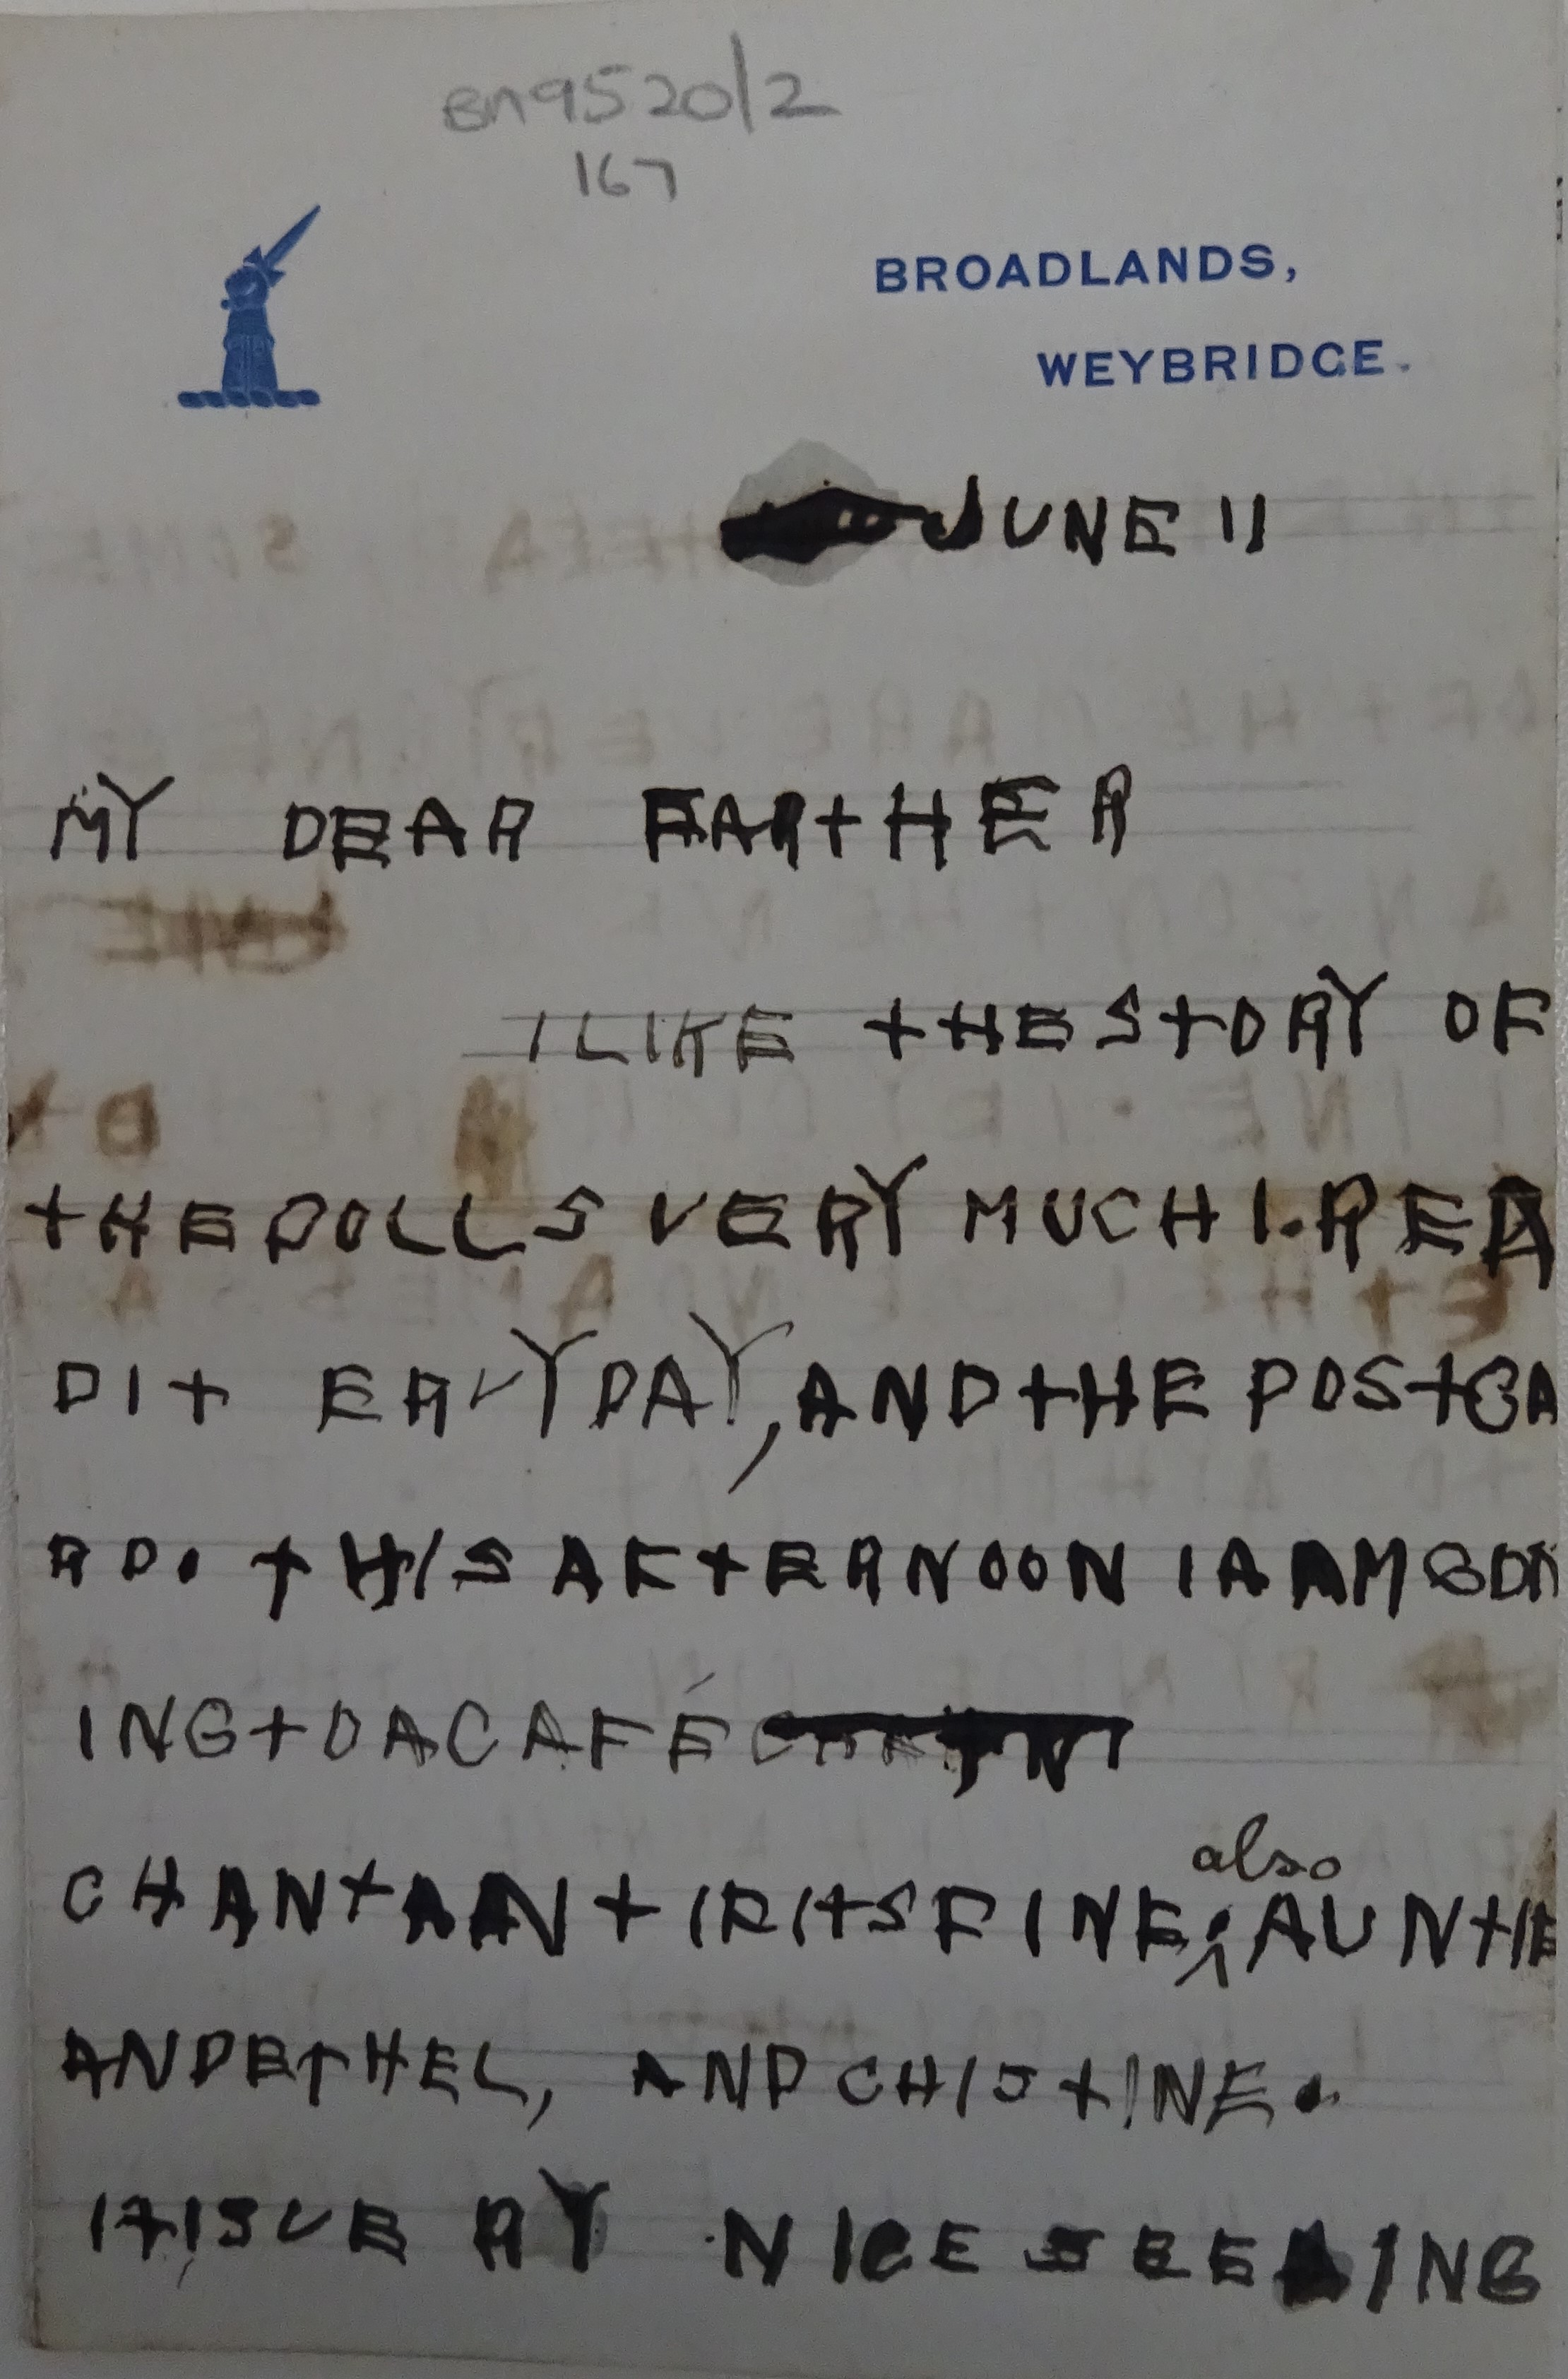 BN9520/2
167
BROADLANDS,
WEYBRIDGE.
JUNE 11
MY DEAR FARTHER
I LIKE THE STORY OF
THE DOLLS VERY MUCH I REA
D IT ERVY DAY, AND THE POSTCA
RD. THIS AFTERNOON I AAM GO
ING TO A CAFÉ
CHANTAANT IF ITS FINE, also AUNTIE
AND ETHEL, AND CHISTINE.
IT IS VERY NICE SEEING